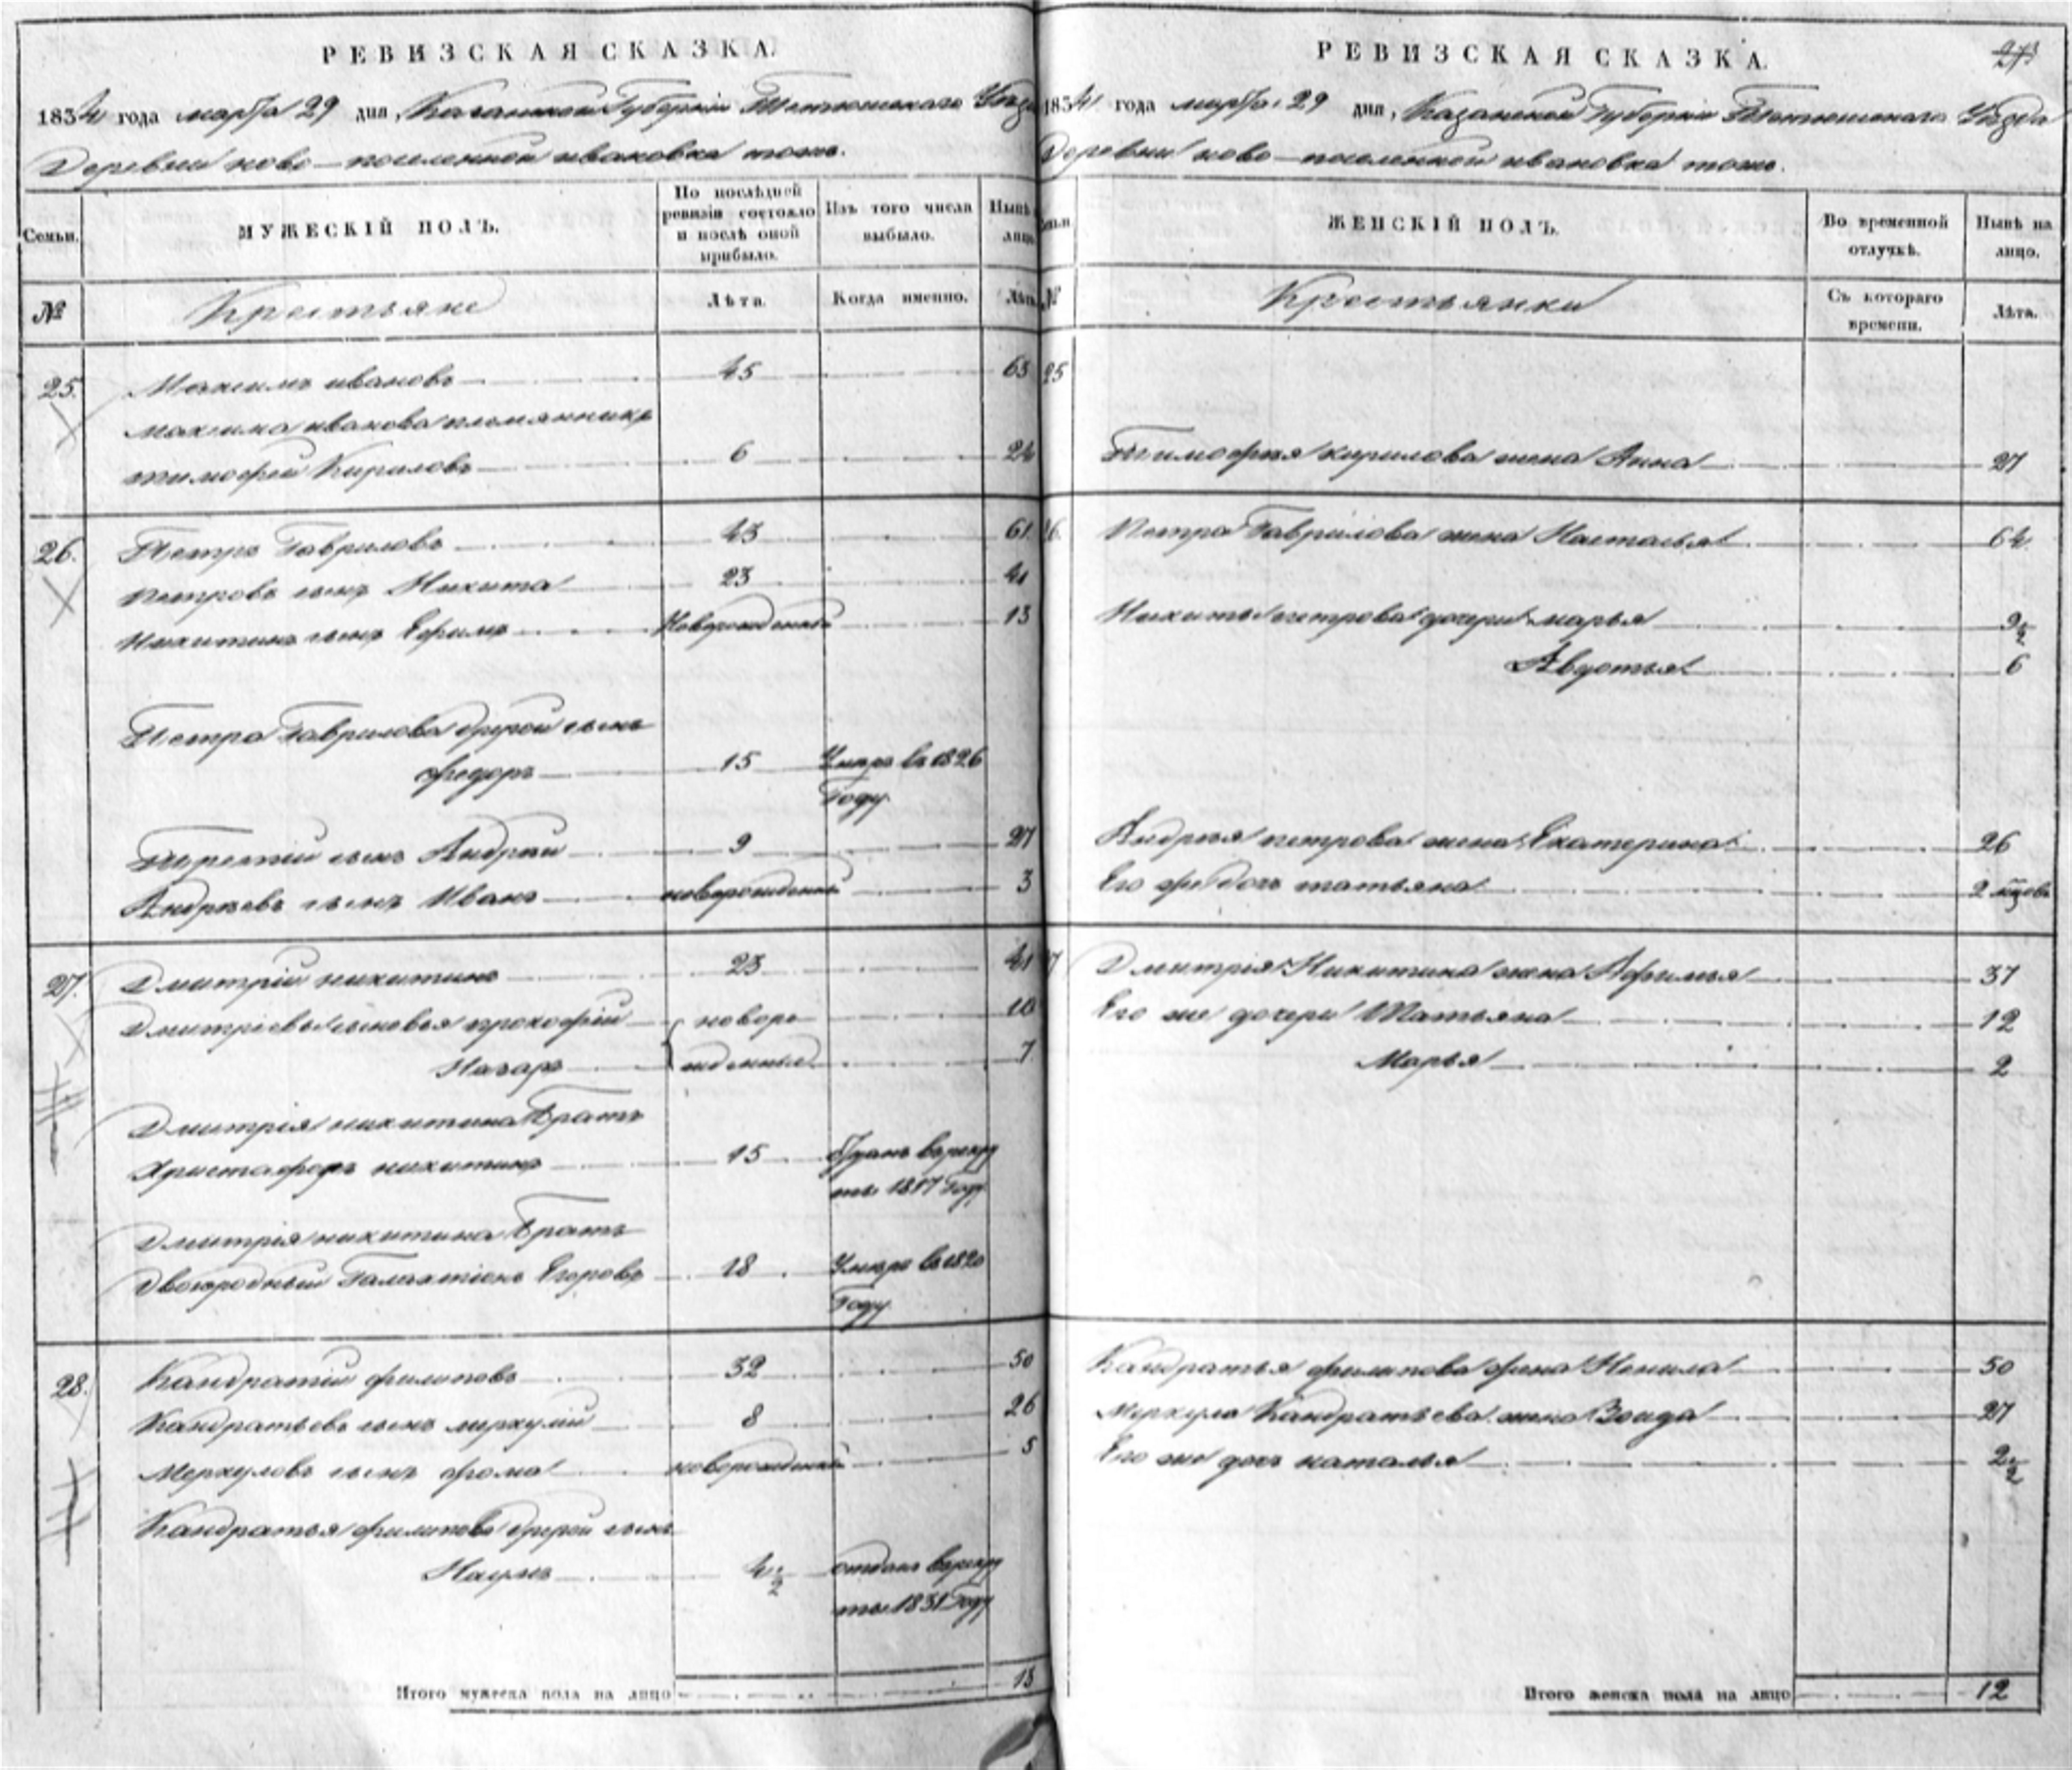 РЕВИЗСКАЯ СКАЗКА.
1834 года марта 29 дня, Казанской Губернии Тетюшскаго Уезда
Деревни ново-поселенной ивановка тожъ.
Семьи.
МУЖЕСКІЙ ПОЛЪ.
По послѣдней ревизіи состояло и послѣ оной прибыло.
Изъ того числа выбыло.
Нынѣ лицо
№
Крестьяне
Лѣта.
Когда именно.
Лѣта
25. Максимъ ивановъ 45 63
Максима иванова племянникъ
тимофей Кириловъ 6 24
26. Петръ Гавриловъ 43 61
Петровъ сынъ Никита 23 41
Никитинъ сынъ Ефимъ Новорожденный 13
Петра Гаврилова другой сынъ
федоръ 15 Умре въ 1826
Году.
Третій сынъ Андрей 9 27
Андреевъ сынъ Иванъ новорожденный 3
27. Дмитрій никитинъ 23 41
Дмитріевы сыновья прокофій новоро 10
Назаръ жденные 7
Дмитрія никитина Братъ
Христафоръ никитинъ 15 Отданъ врекру
ты 1817 Году
Дмитрія никитина Братъ
Двоюродный Галактіонъ Егоровъ 18 Умре въ 1820
Году.
28. Кандратій филиповъ 32 50
Кандратьевъ сынъ меркулій 8 26
Меркуловъ сынъ фома новорожденный 5
Кандратья филипова другой сынъ
Наумъ 4 1/2 отданъ врекру
ты 1831 Году
Итого мужеска пола на лицо 13
РЕВИЗСКАЯ СКАЗКА.
273
1834 года марта 29 дня, Казанской Губернии Тетюшскаго Уезда
Деревни ново-поселенной ивановка тожъ.
Семьи
ЖЕНСКІЙ ПОЛЪ.
Во временной отлучкѣ.
Нынѣ на лицо.
№
Крестьянки
Съ котораго времени.
Лѣта.
25
Тимофея кирилова жена Анна 27
26. Петра Гаврилова жена Настасья 64
Никиты петрова дочери марья 9 1/2
Авдотья 6
Андрея петрова жена Екатерина 26
Его же дочь татьяна 2 мцовъ
27 Дмитрія Никитина жена Афимья 37
Его же дочери Татьяна 12
Марья 2
Кандратья филипова жена Ненила 50
Меркула Кандратьева жена 27
Его же дочь наталья 2 1/2
Итого женска пола на лицо 12